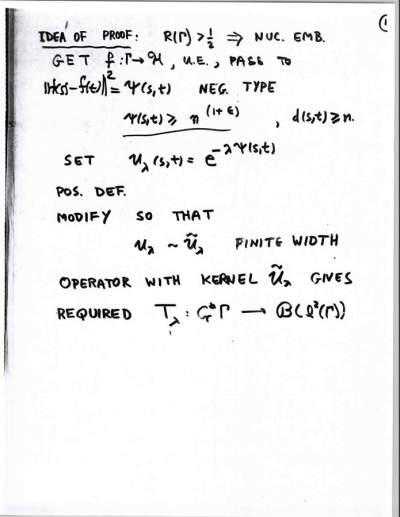 ①
IDEA OF PROOF: R(Γ) > 1/2 ⇒ NUC. EMB.
GET f: Γ → H, U.E., PASS TO
‖f(s)-f(t)‖² = Ψ(s,t) NEG. TYPE
Ψ(s,t) ≥ n^(1+ε), d(s,t) ≥ n.
SET u_λ(s,t) = e^{-λΨ(s,t)}
POS. DEF.
MODIFY SO THAT
u_λ ~ ũ_λ FINITE WIDTH
OPERATOR WITH KERNEL ũ_λ GIVES
REQUIRED T_λ : C*_r Γ → B(ℓ²(Γ))